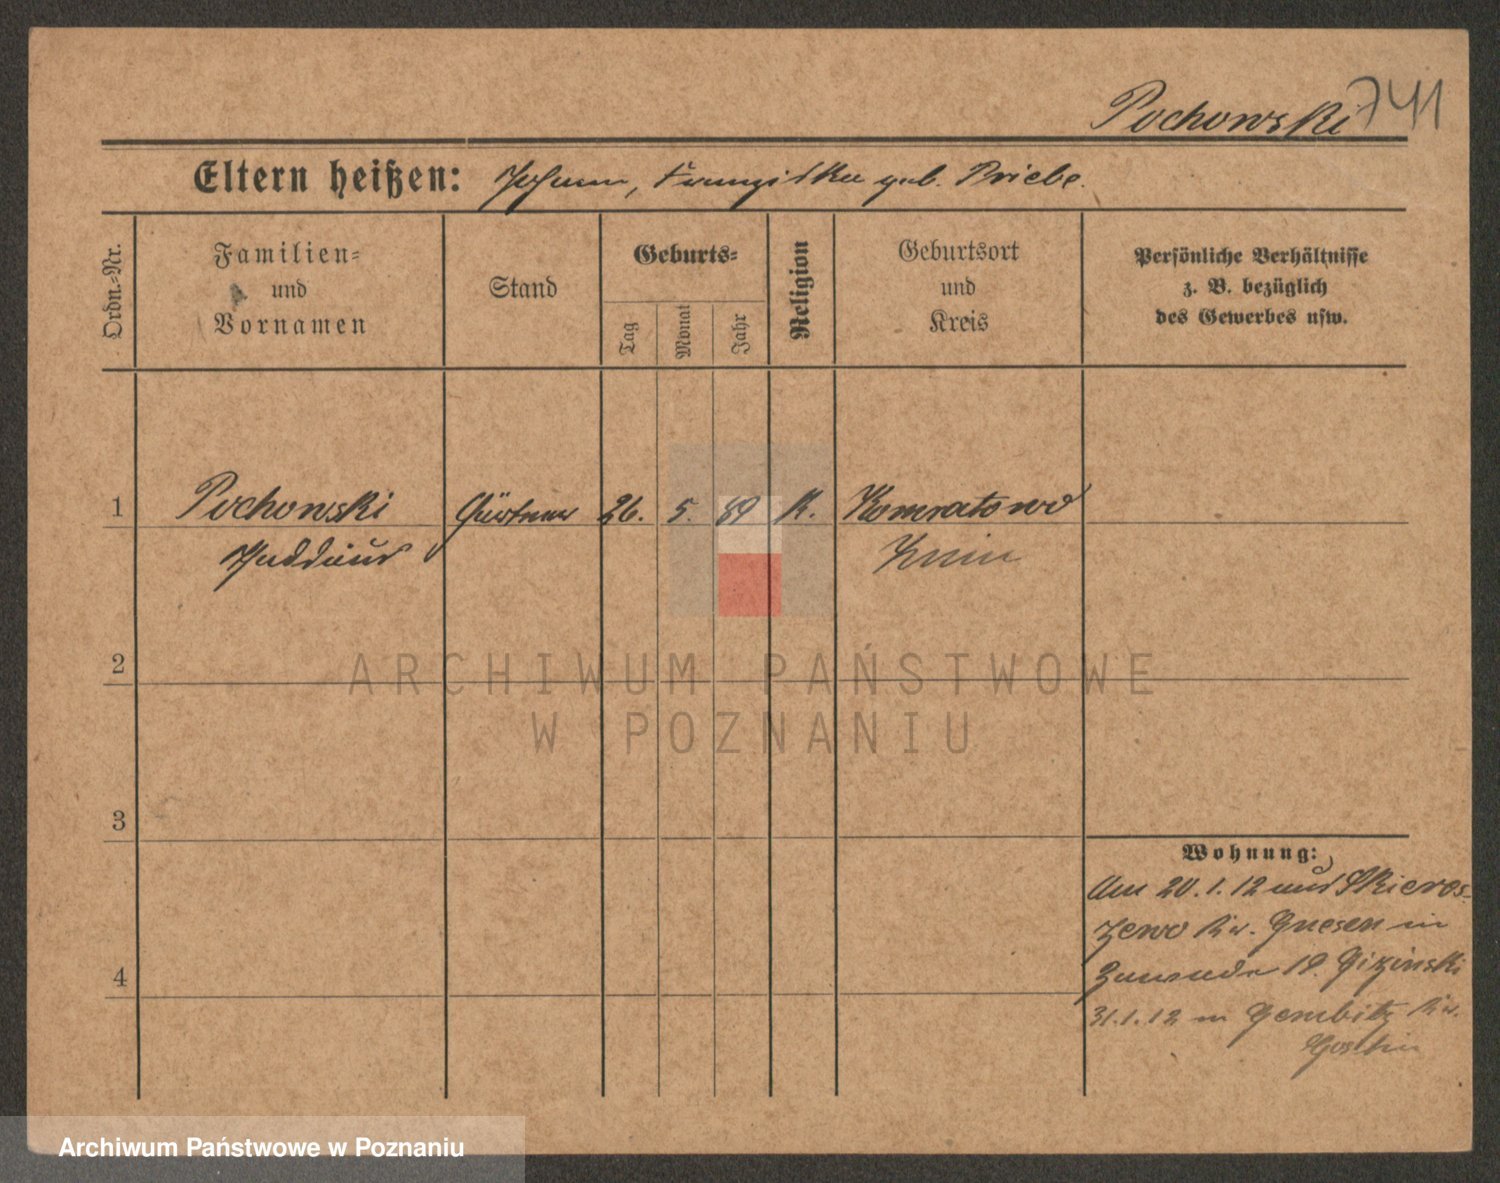 Pochowski 741
Eltern heißen: Johann, Franziska geb. Priebe.
Ordn.-Nr.
Familien-
und
Vornamen
Stand
Geburts-
Tag
Monat
Jahr
Religion
Geburtsort
und
Kreis
Persönliche Verhältnisse
z. B. bezüglich
des Gewerbes usw.
1 Pochowski Gärtner 26. 5. 89 K. Komratowo
Thaddäus Znin
2
ARCHIWUM PAŃSTWOWE
W POZNANIU
3
4
Wohnung:
Am 20.1.12 aus Skieres-
zewo Kr. Gnesen in
Zawade 19. Gizinski
31.1.12 n Gembitz Kr.
Gostin
Archiwum Państwowe w Poznaniu